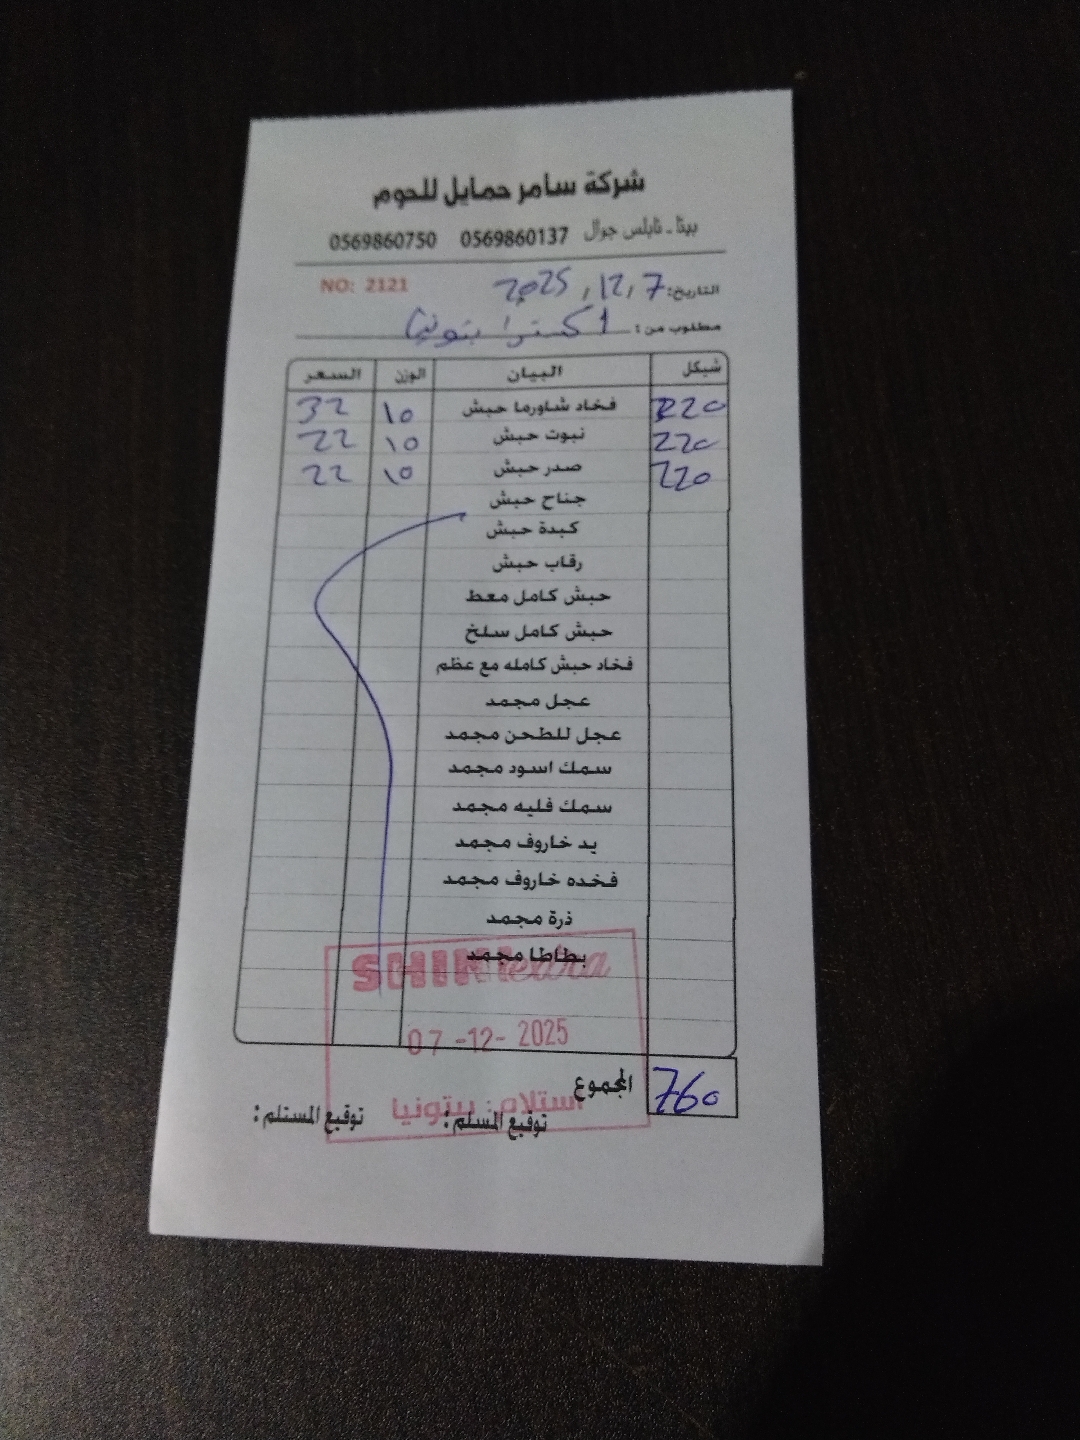 شركة سامر حمايل للحوم
بيتا - نابلس جوال 0569860137 0569860750
التاريخ: 7 , 12 , 2025 NO: 2121
مطلوب من : اكسترا بتونيا
شيكل البيان الوزن السعر
220 فخاد شاورما حبش 10 32
220 نبوت حبش 10 22
220 صدر حبش 10 22
جناح حبش
كبدة حبش
رقاب حبش
حبش كامل معط
حبش كامل سلخ
فخاد حبش كامله مع عظم
عجل مجمد
عجل للطحن مجمد
سمك اسود مجمد
سمك فليه مجمد
يد خاروف مجمد
فخده خاروف مجمد
ذرة مجمد
بطاطا مجمد
07 -12- 2025
المجموع 760
استلام: بيتونيا
توقيع المسلم : توقيع المستلم :